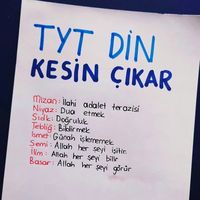 TYT DİN
KESİN ÇIKAR
Mizan: İlahi adalet terazisi
Niyaz: Dua etmek
Sıdk: Doğruluk
Tebliğ: Bildirmek
İsmet: Günah işlememek
Semi: Allah her şeyi işitir
İlim: Allah her şeyi bilir
Basar: Allah her şeyi görür